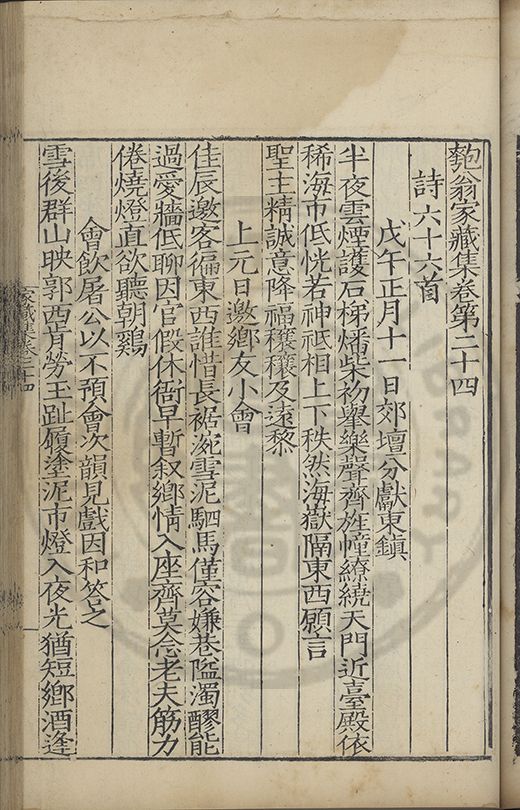 匏翁家藏集卷第二十四
詩六十六首
戊午正月十一日郊壇分獻東鎮
半夜雲煙護石梯燔柴初舉樂聲齊旌幢繚繞天門近臺殿依
稀海市低恍若神祇相上下秩然海嶽隔東西願言
聖主精誠意降福穰穰及遠黎
上元日邀鄉友小會
佳辰邀客徧東西誰惜長裾涴雪泥駟馬僅容嫌巷隘濁醪能
過愛牆低聊因官假休衙早暫叙鄉情入座齊莫念老夫筋力
倦燒燈直欲聽朝鷄
會飲屠公以不預會次韻見戲因和答之
雪後群山映郭西肯勞玉趾履塗泥市燈入夜光猶短鄉酒逢
家藏集卷二十四